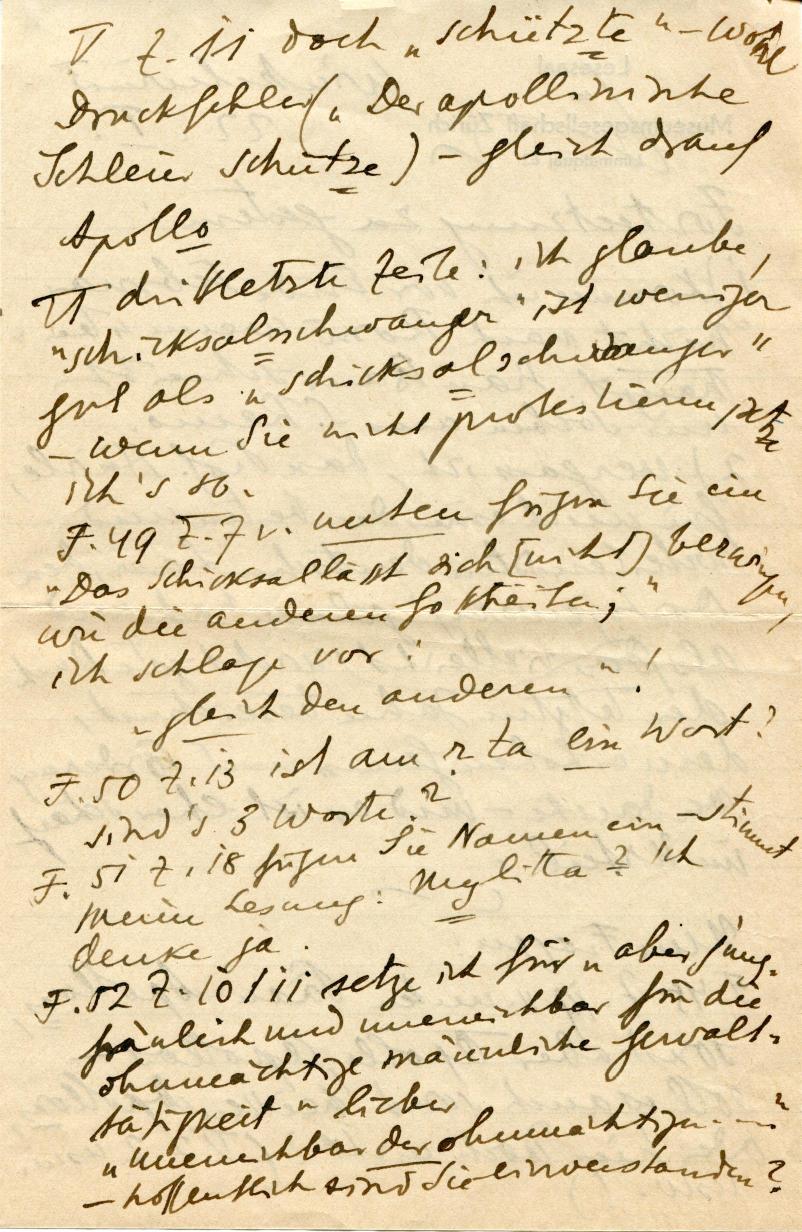 V Z. 11 doch „schützte“ – wohl
Druckfehler („Der apollinische
Schleier schütze) – gleich drauf
Apollo
VI drittletzte Zeile: ich glaube,
"schicksalsschwanger" ist weniger
gut als „schicksalschwanger"
– wenn Sie nicht protestieren, setze
ich's so.
F. 49 Z. 7 v. unten fügen Sie ein
"Das Schicksal lässt sich [nicht] bezwingen,
wie die anderen Gottheiten;"
ich schlage vor:
„gleich den anderen"!
F. 50 Z. 13 ist am ? ta ein Wort?
sind's 3 Worte?
F. 51 Z. 18 fügen Sie Namen ein – stimmt
meine Lesung: Mylitta? Ich
denke ja.
F. 52 Z. 10/11 setze ich für „aber jung-
fräulich und unerreichbar für die
ohnmächtige männliche Gewalt-
tätigkeit" lieber
"unerreichbar der ohnmächtigen - - -"
– hoffentlich sind Sie einverstanden?